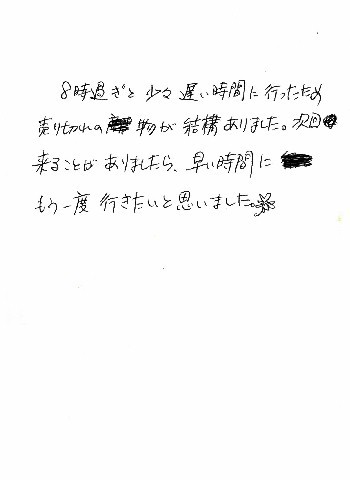 8時過ぎと少々遅い時間に行ったため
売り切れの物が結構ありました。次回
来ることがありましたら、早い時間に
もう一度行きたいと思いました。